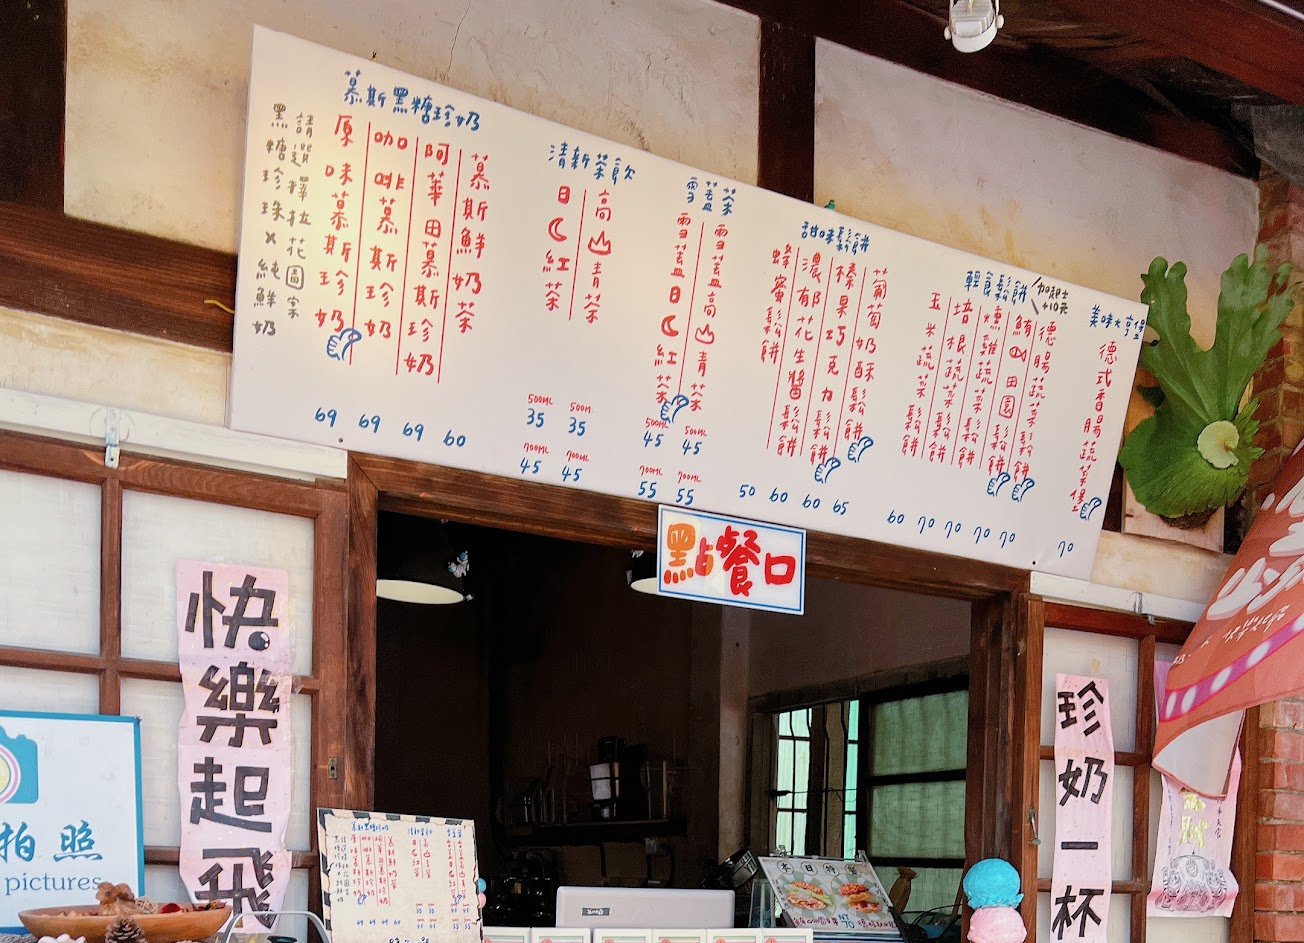 慕斯黑糖珍奶
請選擇拉花圖案
黑糖珍珠×純鮮奶
原味慕斯珍奶
咖啡慕斯珍奶
阿華田慕斯珍奶
慕斯鮮奶茶
69 69 69 60
清新茶飲
日月紅茶
高山青茶
500ML 500ml
35 35
700ML 700ML
45 45
雪蓋茶
雪蓋日月紅茶
雪蓋高山青茶
500ML 500ML
45 45
700ML 700ML
55 55
甜味鬆餅
蜂蜜鬆餅
濃郁花生醬鬆餅
榛果巧克力鬆餅
葡萄奶酥鬆餅
50 60 60 65
輕食鬆餅
加起士
+10元
玉米蔬菜鬆餅
培根蔬菜鬆餅
燻雞蔬菜鬆餅
鮪魚田園鬆餅
德腸蔬菜鬆餅
60 70 70 70 70
美味大亨堡
德式香腸蔬菜堡
70
點餐口
快樂起飛
珍奶一杯
拍照
pictures
慕斯黑糖珍奶
清新茶飲
雪蓋茶
本日特餐